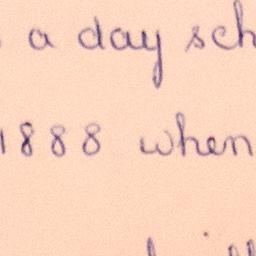 a day sch
1888 when